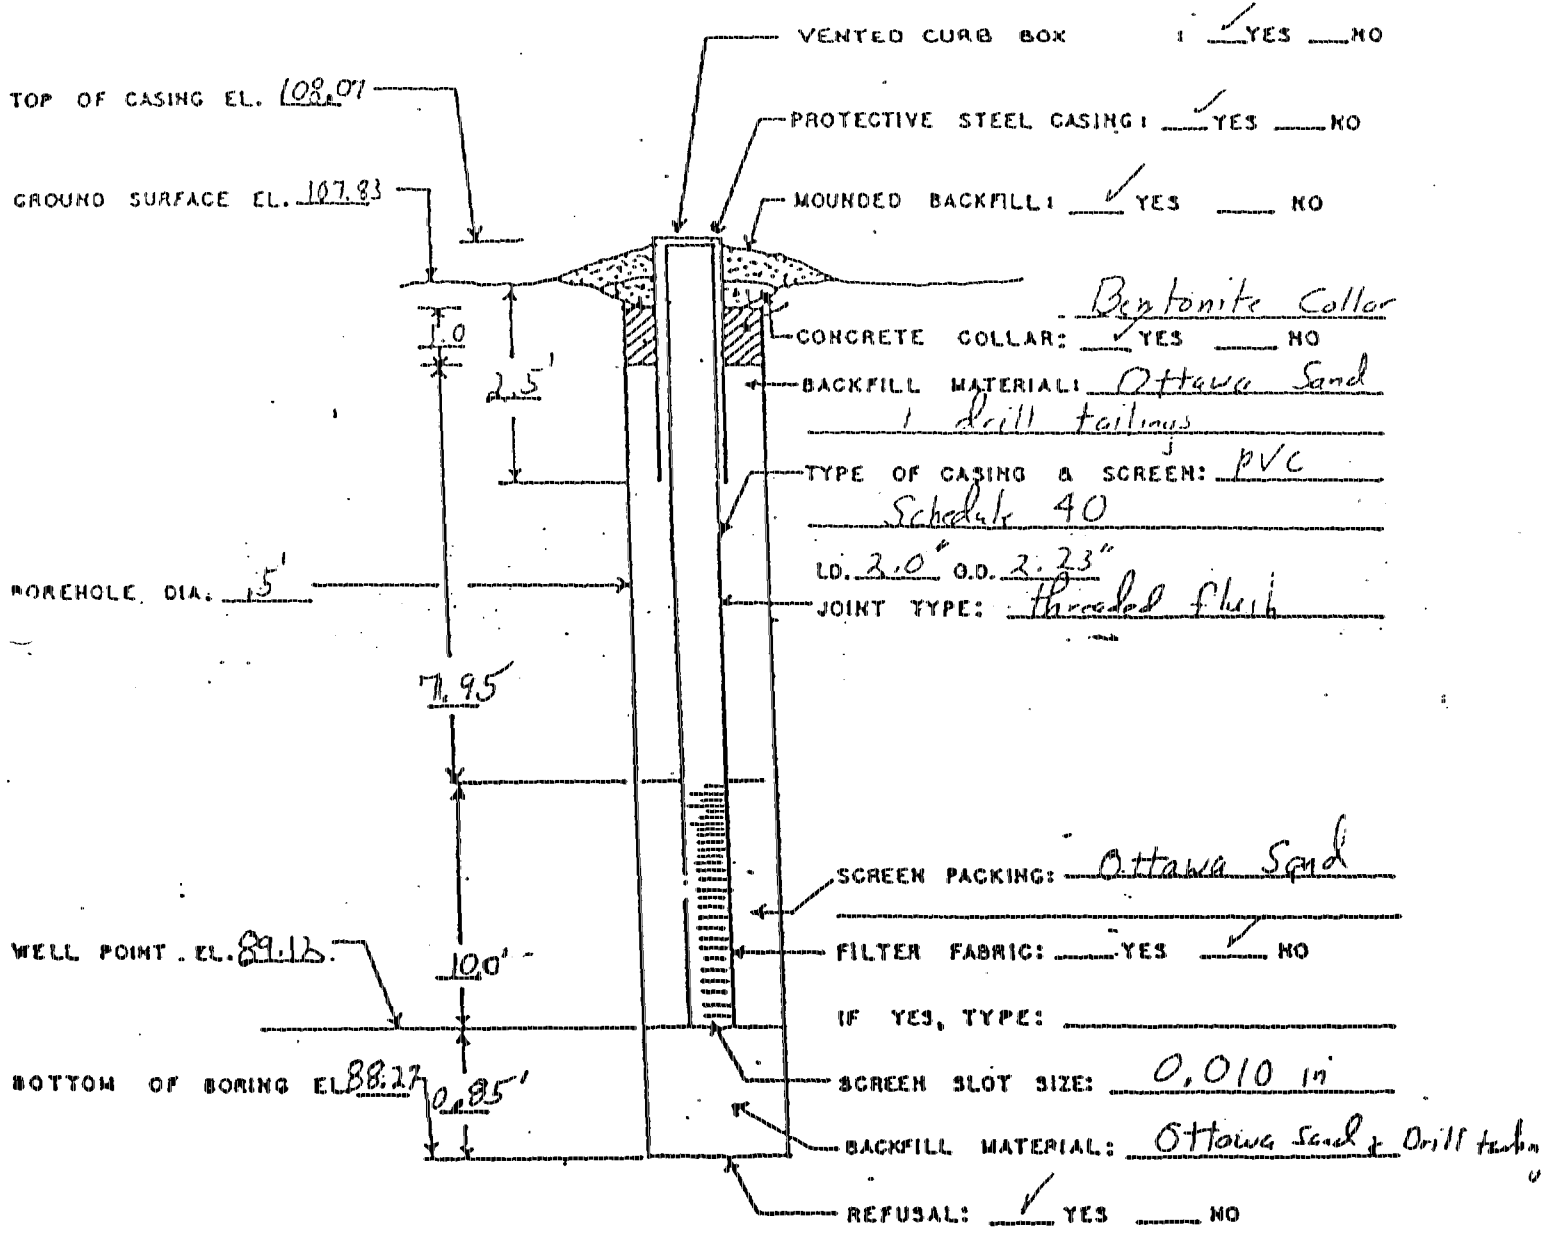 VENTED CURB BOX : ✓ YES ___ NO
TOP OF CASING EL. 108.07
PROTECTIVE STEEL CASING: ✓ YES ___ NO
GROUND SURFACE EL. 107.83
MOUNDED BACKFILL: ✓ YES ___ NO
Bentonite Collar
1.0
CONCRETE COLLAR: ✓ YES ___ NO
2.5'
BACKFILL MATERIAL: Ottawa Sand
drill tailings
TYPE OF CASING & SCREEN: PVC
Schedule 40
I.D. 2.0" O.D. 2.23"
BOREHOLE DIA. .5'
JOINT TYPE: threaded flush
7.95
SCREEN PACKING: Ottawa Sand
WELL POINT EL.
FILTER FABRIC: ___ YES ✓ NO
10.0'
IF YES, TYPE:
BOTTOM OF BORING EL 88.27
0.85'
SCREEN SLOT SIZE: 0.010 in
BACKFILL MATERIAL: Ottawa Sand & Drill
REFUSAL: ✓ YES ___ NO